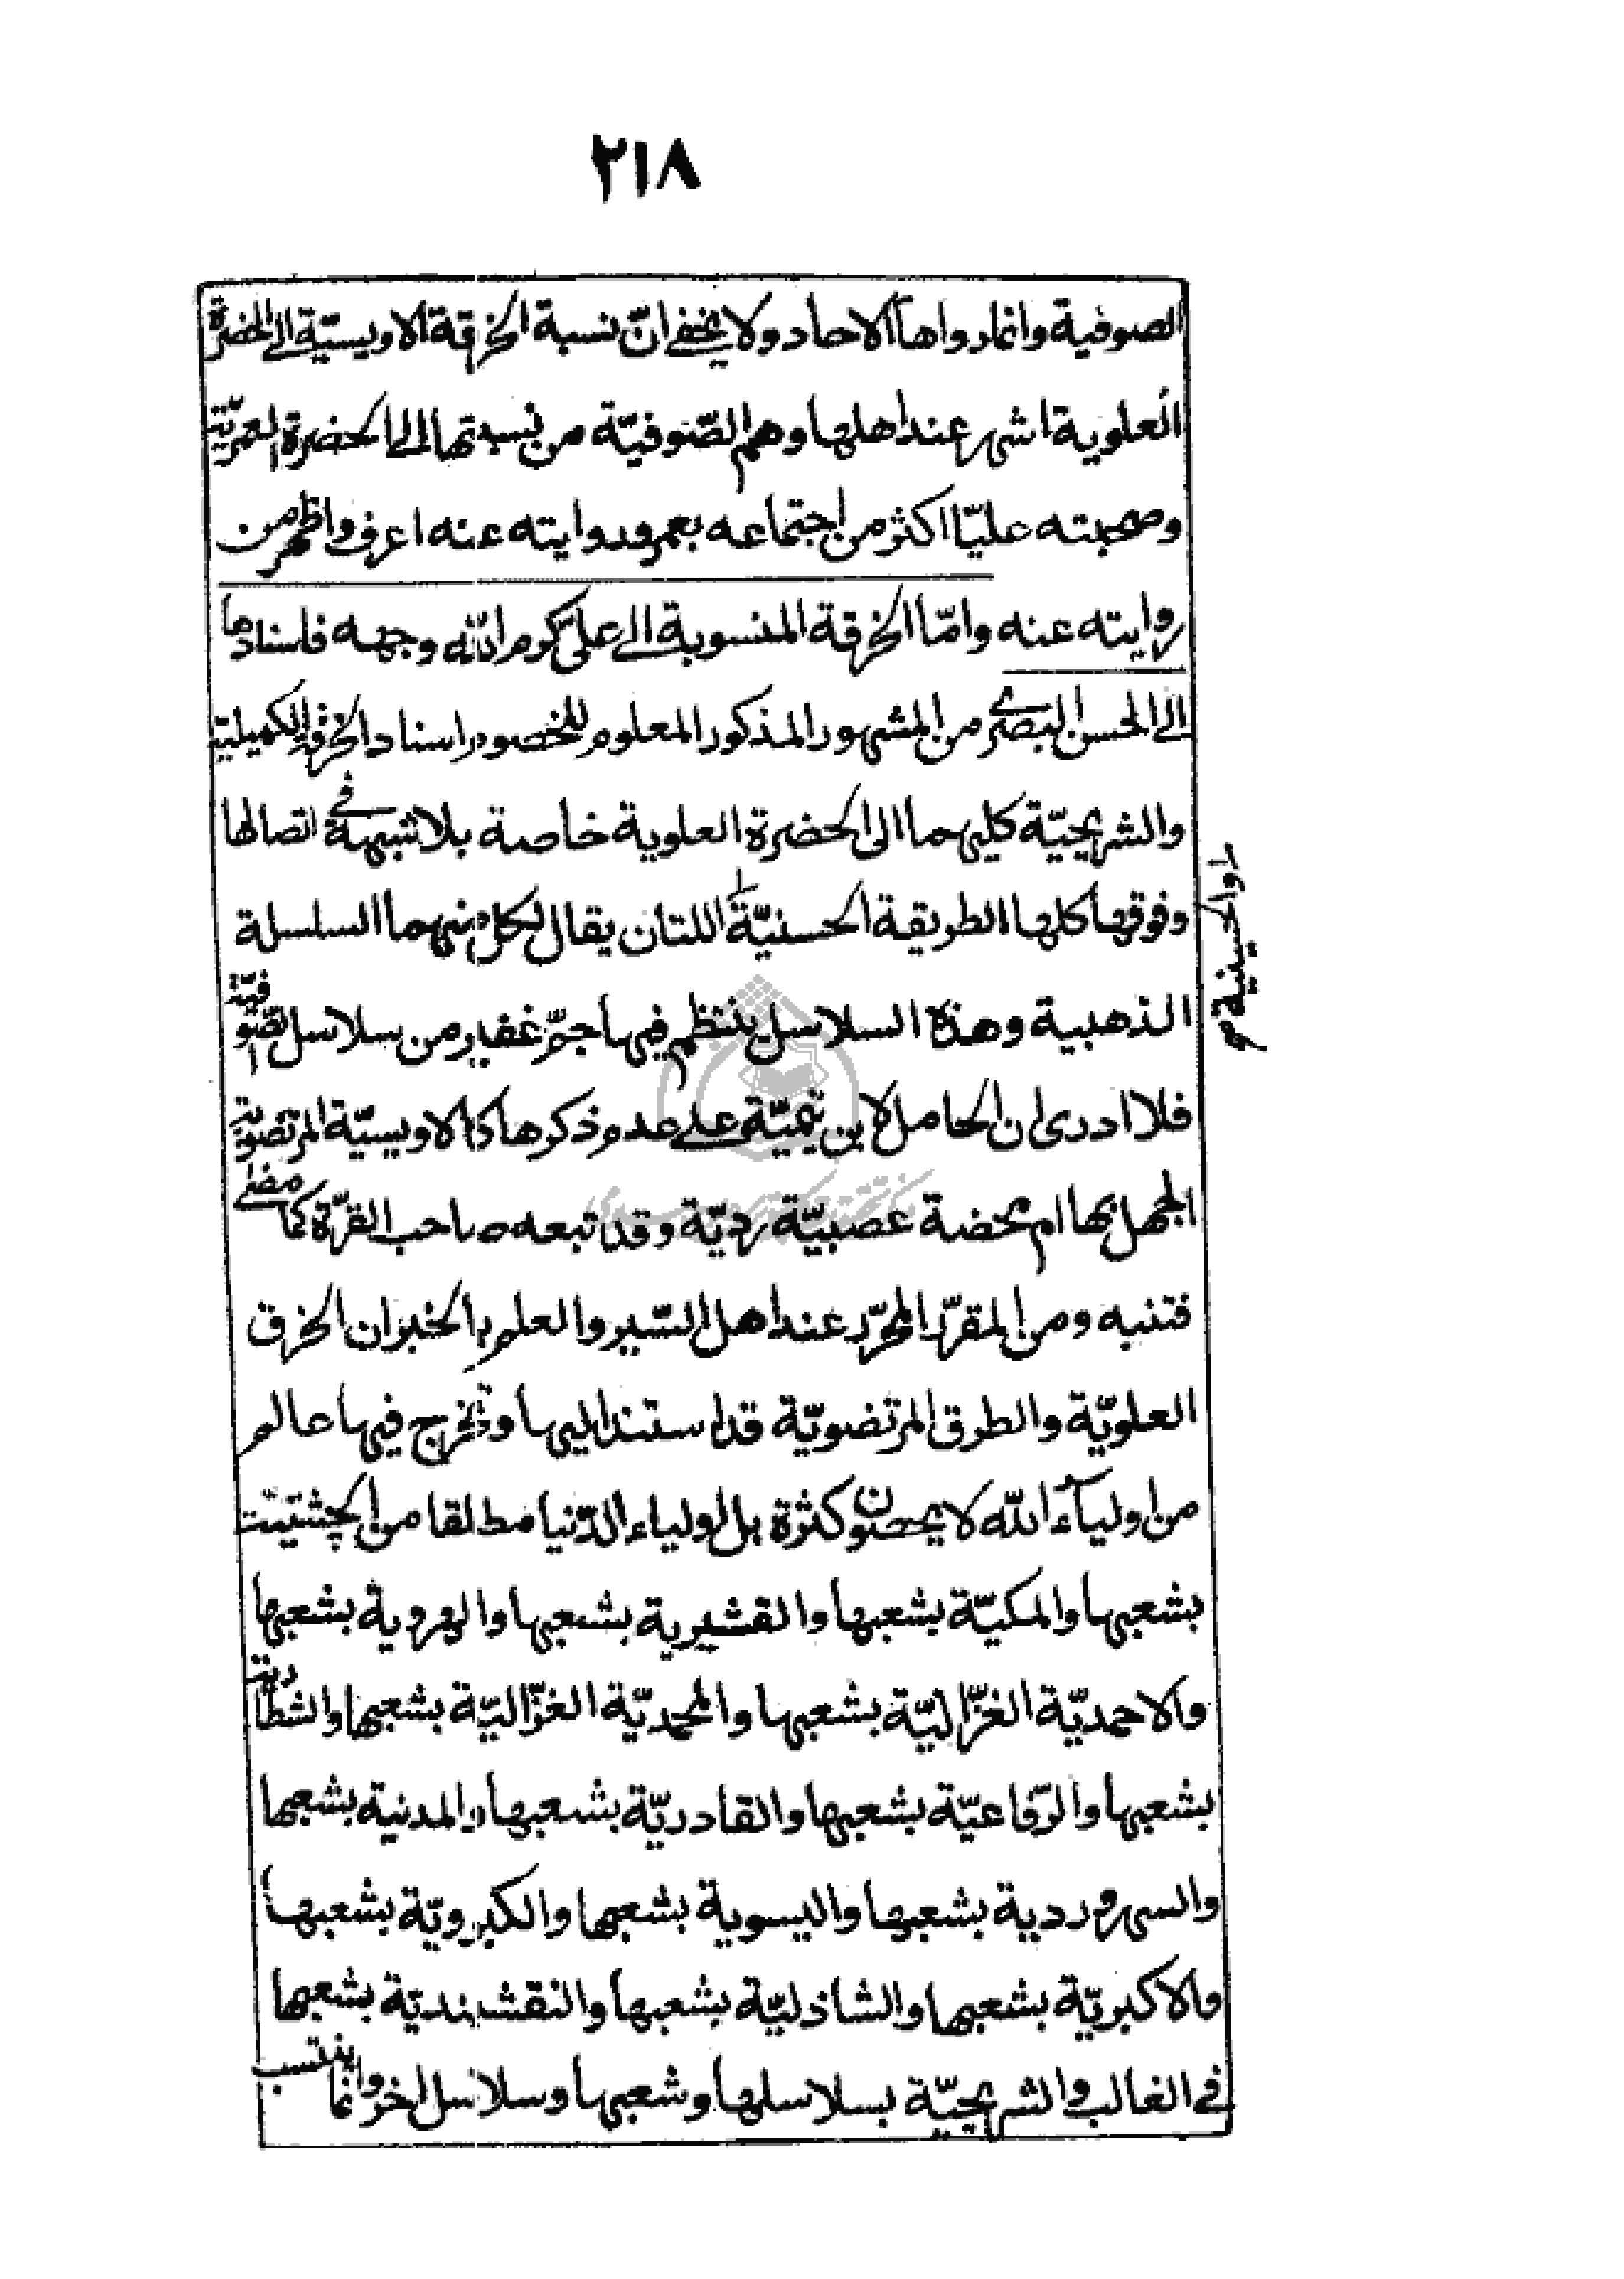 ٢١٨
الصوفية وانما رواها الاحاد ولا يخفى انّ نسبة الخرقة الاويسيّة الى الحضرة
العلوية اشهر عند اهلها وهم الصّوفيّة من نسبتها الى الحضرة العمريّة
وصحبته عليّا اكثر من اجتماعه بعمر وروايته عنه اعرف واظهر من
روايته عنه وامّا الخرقة المنسوبة الى علىّ كرم الله وجهه فاسنادها
الى الحسن البصرى من المشهور المذكور المعلوم للخصوم واسناد الخرقة الكميلية
والشريحيّة كليهما الى الحضرة العلوية خاصة بلا شبهة فى اتصالها
وفوقها كلها الطريقة الحسنيّة اللتان يقال لكل منهما السلسلة
والحسينية صح
الذهبية وهذه السلاسل ينتظم فيها جمّ غفير من سلاسل الصّوفيّة
فلا ادرى ان الحامل لابن تيميّة على عدم ذكرها كالاويسيّة المرتضويّة
الجهل بها ام محضة عصبيّة رديّة وقد تبعه صاحب القرّة كما مضى
فتنبه ومن المقرّر المحرّر عند اهل السّير والعلم بالخبر ان الخرق
العلويّة والطرق المرتضويّة قد استند اليها وتخرج فيها عالم
من اولياء الله لا يحصون كثرة بل اولياء الدّنيا مطلقا من الچشتيّة
بشعبها والمكيّة بشعبها والقشيرية بشعبها والهروية بشعبها
والاحمديّة الغزّاليّة بشعبها والمحمديّة الغزّاليّة بشعبها والشطّارية
بشعبها والرّفاعيّة بشعبها والقادريّة بشعبها والمدنية بشعبها
والسهروردية بشعبها واليسوية بشعبها والكبرويّة بشعبها
والاكبريّة بشعبها والشاذليّة بشعبها والنقشبنديّة بشعبها
فى الغالب والشريحيّة بسلاسلها وشعبها وسلاسل اخر وانما ينتسب